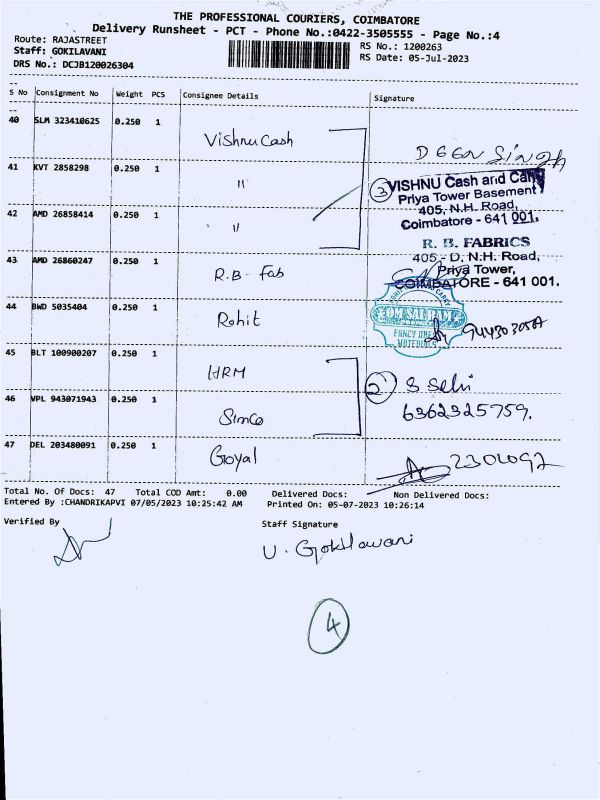 THE PROFESSIONAL COURIERS, COIMBATORE
Delivery Runsheet - PCT - Phone No.:0422-3505555 - Page No.:4
Route: RAJASTREET
RS No.: 1200263
Staff: GOKILAVANI
RS Date: 05-Jul-2023
DRS No.: DCJB120026304
S No Consignment No Weight PCS Consignee Details Signature
40 SLM 323410625 0.250 1 Vishnu Cash
41 KVT 2858298 0.250 1 "
42 AMD 26858414 0.250 1 "
3 VISHNU Cash and Carry
Priya Tower Basement
405, N.H. Road,
Coimbatore - 641 001.
43 AMD 26860247 0.250 1 R.B- Fab
R. B. FABRICS
405 - D, N.H. Road,
Priya Tower,
COIMBATORE - 641 001.
44 BWD 5035404 0.250 1 Rohit
OM SAI RAM
FANCY DRESS
MATERIALS
45 BLT 100900207 0.250 1 HRM
2 S Selvi
46 VPL 943071943 0.250 1 Simco
6362325759.
47 DEL 203480091 0.250 1 Goyal
Total No. Of Docs: 47 Total COD Amt: 0.00 Delivered Docs: Non Delivered Docs:
Entered By :CHANDRIKAPVI 07/05/2023 10:25:42 AM Printed On: 05-07-2023 10:26:14
Verified By Staff Signature
U. Gokilavani
4